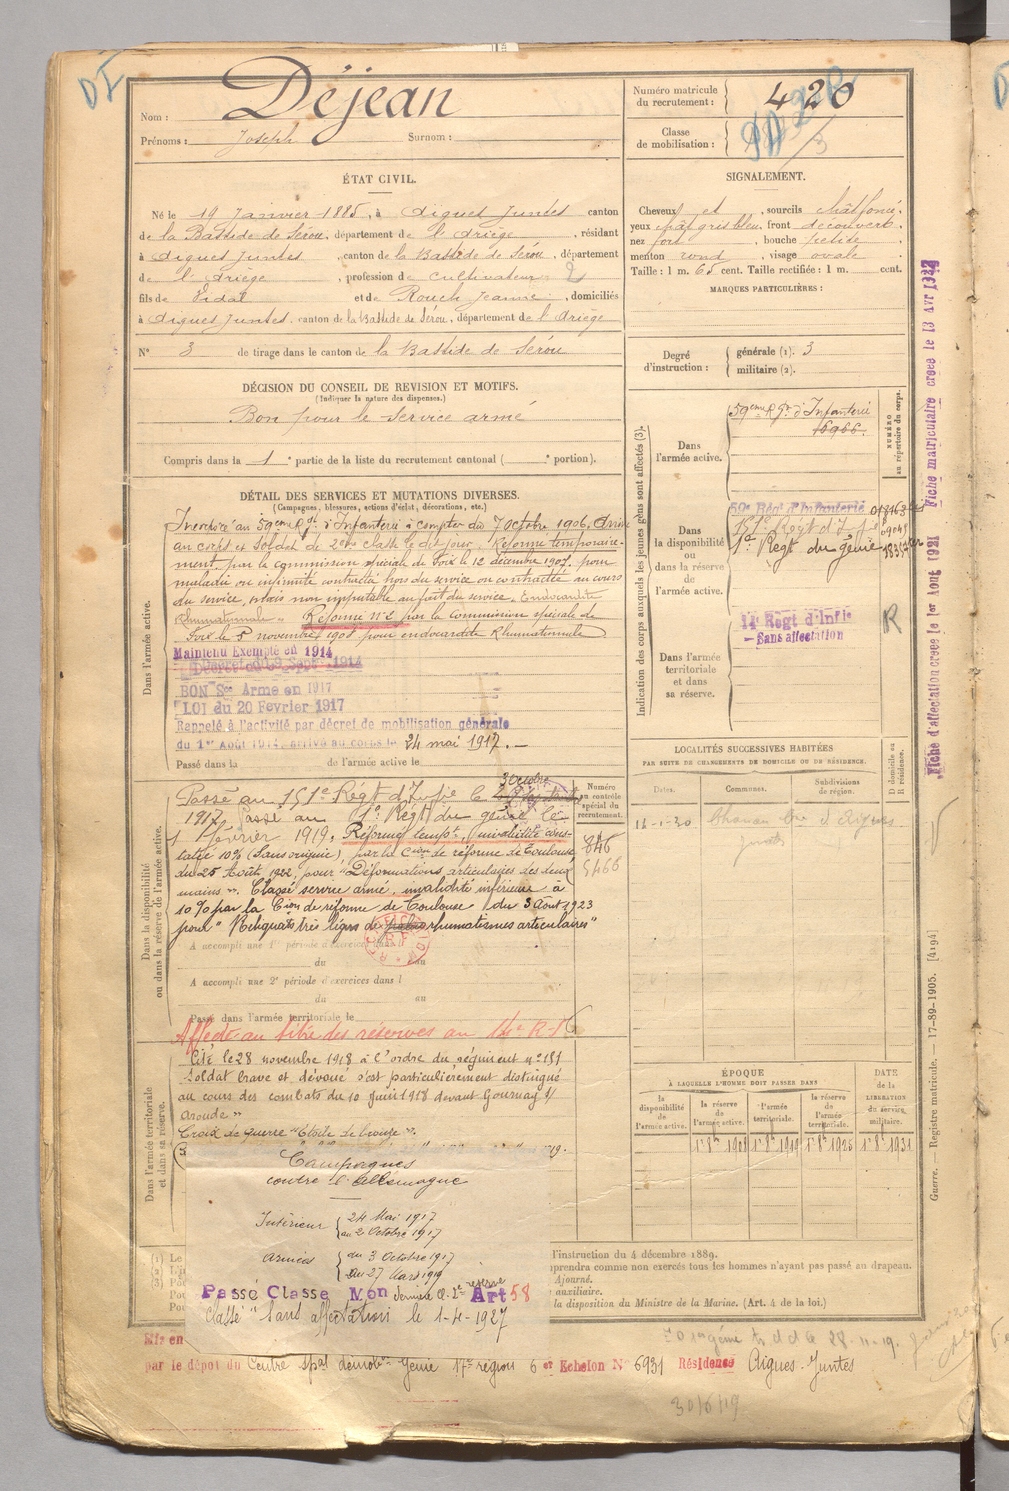 Nom : Déjean
Prénoms : Joseph Surnom :
Numéro matricule du recrutement : 420
Classe de mobilisation :
ÉTAT CIVIL.
Né le 19 Janvier 1885, à Aigues Juntes canton
de la Bastide de Sérou, département de l'Ariège, résidant
à Aigues Juntes, canton de la Bastide de Sérou, département
de l'Ariège, profession de cultivateur 2
fils de Vidal et de Rouch Jeanne, domiciliés
à Aigues Juntes, canton de la Bastide de Sérou, département de l'Ariège
N° 3 de tirage dans le canton de la Bastide de Sérou
SIGNALEMENT.
Cheveux et, sourcils chât foncé,
yeux chât gris bleu, front découvert,
nez fort, bouche petite,
menton rond, visage ovale
Taille : 1 m. 65 cent. Taille rectifiée : 1 m. cent.
MARQUES PARTICULIÈRES :
Degré d'instruction : générale (1). 3
militaire (2).
DÉCISION DU CONSEIL DE REVISION ET MOTIFS.
(Indiquer la nature des dispenses.)
Bon pour le service armé
Compris dans la 1e partie de la liste du recrutement cantonal ( e portion).
DÉTAIL DES SERVICES ET MUTATIONS DIVERSES.
(Campagnes, blessures, actions d'éclat, décorations, etc.)
Dans l'armée active.
Incorporé au 59ème Rgt d'Infanterie à compter du 7 octobre 1906. Arrivé
au corps et soldat de 2ème classe le dit jour. Réformé temporaire-
ment par la commission spéciale de Foix le 12 décembre 1907. pour
maladie ou infirmité contractée hors du service ou contractée au cours
du service, mais non imputable au fait du service. Endocardite
Rhumatismale. Réformé n°2 par la Commission spéciale de
Foix le 5 novembre 1908 pour endocardite Rhumatismale
Maintenu Exempté en 1914
Décret du 09 Sept. 1914
BON Sce Armé en 1917
LOI du 20 Février 1917
Rappelé à l'activité par décret de mobilisation générale
du 1er Août 1914, arrivé au corps le 24 mai 1917. —
Passé dans la de l'armée active le
Dans la disponibilité ou dans la réserve de l'armée active.
3 Octobre
Passé au 151e Régt d'Infie le
1917. Passé au 1er Régt du génie le
1 février 1919. Réformé tempre, invalidité cons-
tatée 10% (Sans origine), par la Cion de réforme de Toulouse
du 25 Août 1922, pour "Déformations articulaires des deux
mains". Classé service armé, invalidité inférieure à
10% par la Cion de réforme de Toulouse du 3 Aout 1923
pour "Reliquats très légers de rhumatismes articulaires"
A accompli une 1e période d'exercices
du au
A accompli une 2e période d'exercices dans l
du au
Passé dans l'armée territoriale le
Affecté au titre des réserves au 14e R.I.
Numéro au contrôle spécial du recrutement.
846
5466
Dans l'armée territoriale et dans sa réserve.
Cité le 28 novembre 1918 à l'ordre du régiment n° 181
Soldat brave et dévoué s'est particulièrement distingué
au cours des combats du 10 Juin 1918 devant Gournay s/
Aronde"
Croix de guerre "Etoile de bronze".
Campagnes
contre l'Allemagne
Intérieur { 24 Mai 1917
au 2 Octobre 1917
Armées { du 3 Octobre 1917
au 27 Mars 1919
Passé Classe Mon dernière cl. 2e réserve Art 58
Classé "Sans affectation le 1-4-1927
Indication des corps auxquels les jeunes gens sont affectés (3).
NUMÉRO au répertoire du corps.
Dans l'armée active.
59ème Rgt d'Infanterie
16966.
Dans la disponibilité ou dans la réserve de l'armée active.
59e Régt d'Infanterie
151e Régt d'Infie
1er Régt du génie
Dans l'armée territoriale et dans sa réserve.
14e Regt d'Infie
— Sans affectation
R
LOCALITÉS SUCCESSIVES HABITÉES
PAR SUITE DE CHANGEMENTS DE DOMICILE OU DE RÉSIDENCE.
Dates. Communes. Subdivisions de région. D domicile ou R résidence.
ÉPOQUE
À LAQUELLE L'HOMME DOIT PASSER DANS
la disponibilité de l'armée active. la réserve de l'armée active. l'armée territoriale. la réserve de l'armée territoriale.
DATE de la LIBÉRATION du service militaire.
1er 8bre 1908 1er 8bre 1919 1er 8bre 1925 1er 8bre 1931
l'instruction du 4 décembre 1889.
prendra comme non exercés tous les hommes n'ayant pas passé au drapeau.
Ajourné.
auxiliaire.
la disposition du Ministre de la Marine. (Art. 4 de la loi.)
Mis en
par le dépôt du Centre spal démobon Génie 17e région 6 er Echelon N° 6931 Résidence Aigues-Juntes
30/6/19
Fiche d'affectation créée le 1er Aout 1921 Fiche matriculaire créée le 13 Avr
Guerre. — Registre matricule. — 17-89-1905. [4194]